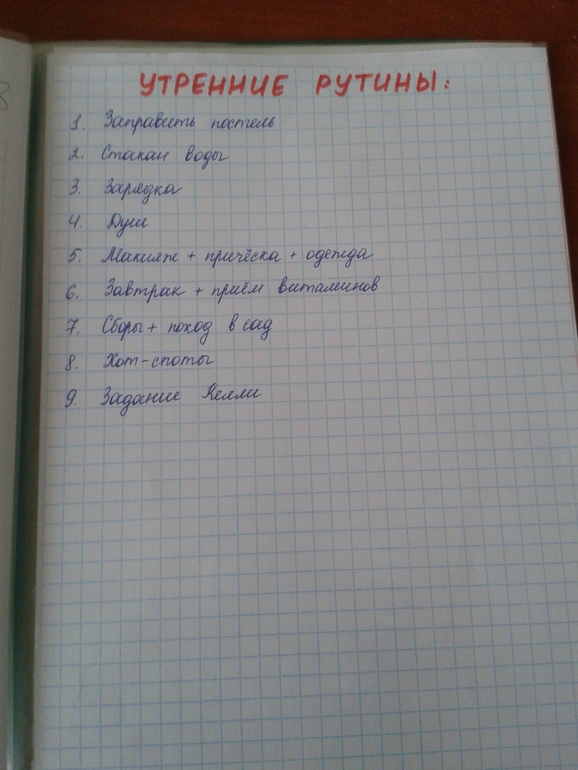 УТРЕННИЕ РУТИНЫ:
1. Заправить постель
2. Стакан воды
3. Зарядка
4. Душ
5. Макияж + причёска + одежда
6. Завтрак + приём витаминов
7. Сборы + поход в сад
8. Хот-споты
9. Задание Келли